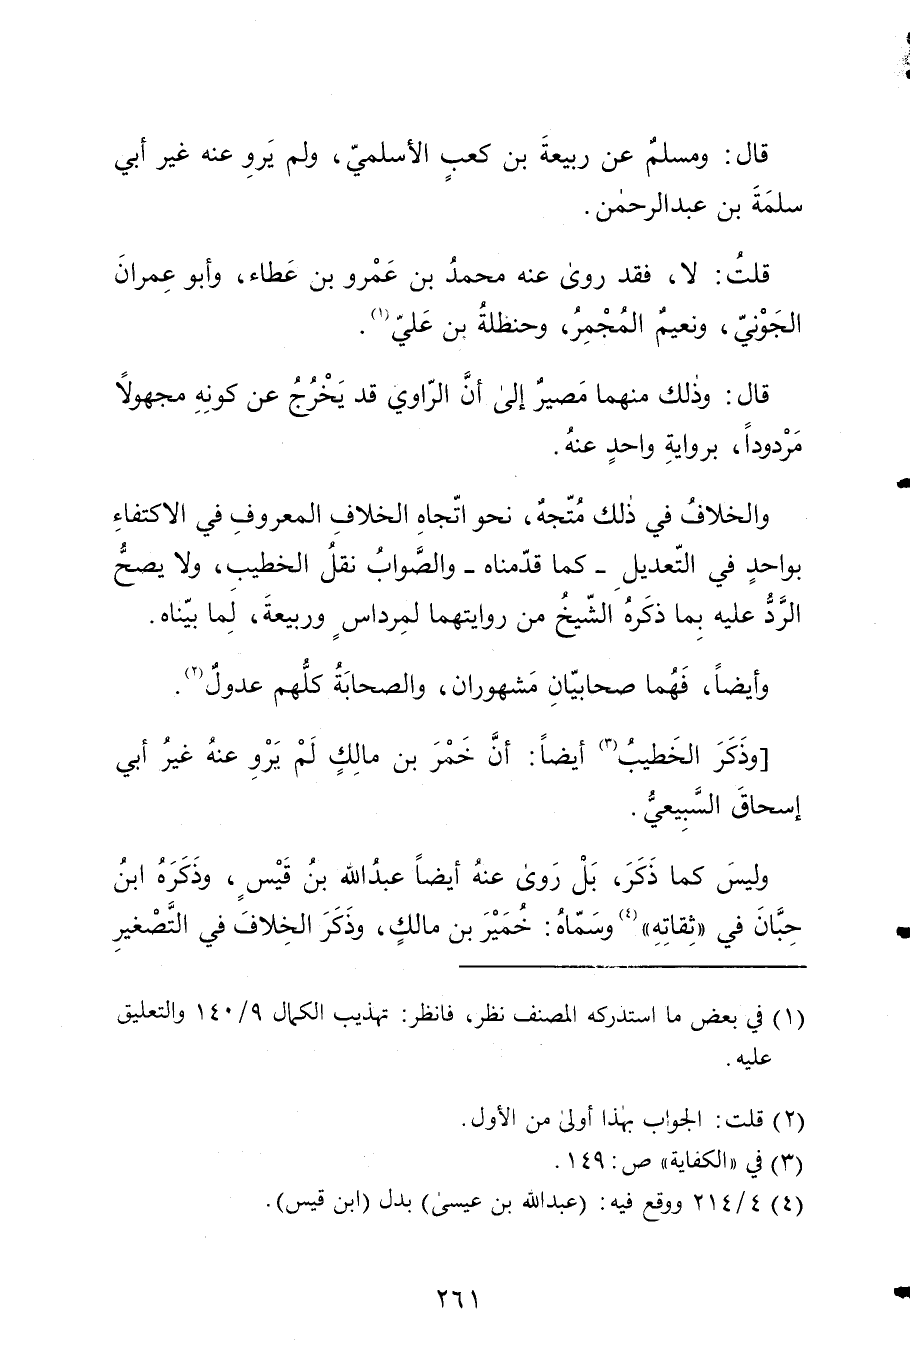 قال: ومسلمٌ عن ربيعةَ بن كعبٍ الأسلميّ، ولم يَروِ عنه غير أبي
سلمَةَ بن عبدالرحمٰن.
قلتُ: لا، فقد روىٰ عنه محمدُ بن عَمْرو بن عَطاء، وأبو عِمرانَ
الجَوْنيّ، ونعيمٌ المُجْمِرُ، وحنظلةُ بن عَليّ(١).
قال: وذٰلك منهما مَصيرٌ إلىٰ أنَّ الرّاوي قد يَخْرُجُ عن كونِهِ مجهولاً
مَرْدوداً، بروايةِ واحدٍ عنهُ.
والخلافُ في ذٰلك مُتّجهٌ، نحو اتّجاهِ الخلافِ المعروفِ في الاكتفاءِ
بواحدٍ في التّعديلِ ـ كما قدّمناه ـ والصَّوابُ نقلُ الخطيبِ، ولا يصحُّ
الرَّدُّ عليه بِما ذكَرهُ الشّيخُ من روايتهما لمِرداسٍ وربيعةَ، لِما بيّناه.
وأيضاً، فَهُما صحابيّانِ مَشهوران، والصحابَةُ كلُّهم عدولٌ(٢).
[وذَكَرَ الخَطيبُ(٣) أيضاً: أنَّ خَمْرَ بن مالِكٍ لَمْ يَرْوِ عنهُ غيرُ أبي
إسحاقَ السَّبِيعيُّ.
وليسَ كما ذَكَرَ، بَلْ رَوىٰ عنهُ أيضاً عبدُالله بنُ قَيْسٍ، وذَكَرَهُ ابنُ
حِبَّانَ في «ثِقاتِهِ»(٤) وسَمّاهُ: خُمَيْرَ بن مالكٍ، وذَكَرَ الخلافَ في التَّصْغيرِ
(١) في بعض ما استدركه المصنف نظر، فانظر: تهذيب الكمال ٩/١٤٠ والتعليق
عليه.
(٢) قلت: الجواب بهٰذا أولىٰ من الأول.
(٣) في «الكفاية» ص: ١٤٩.
(٤) ٤/٢١٤ ووقع فيه: (عبدالله بن عيسىٰ) بدل (ابن قيس).
٢٦١